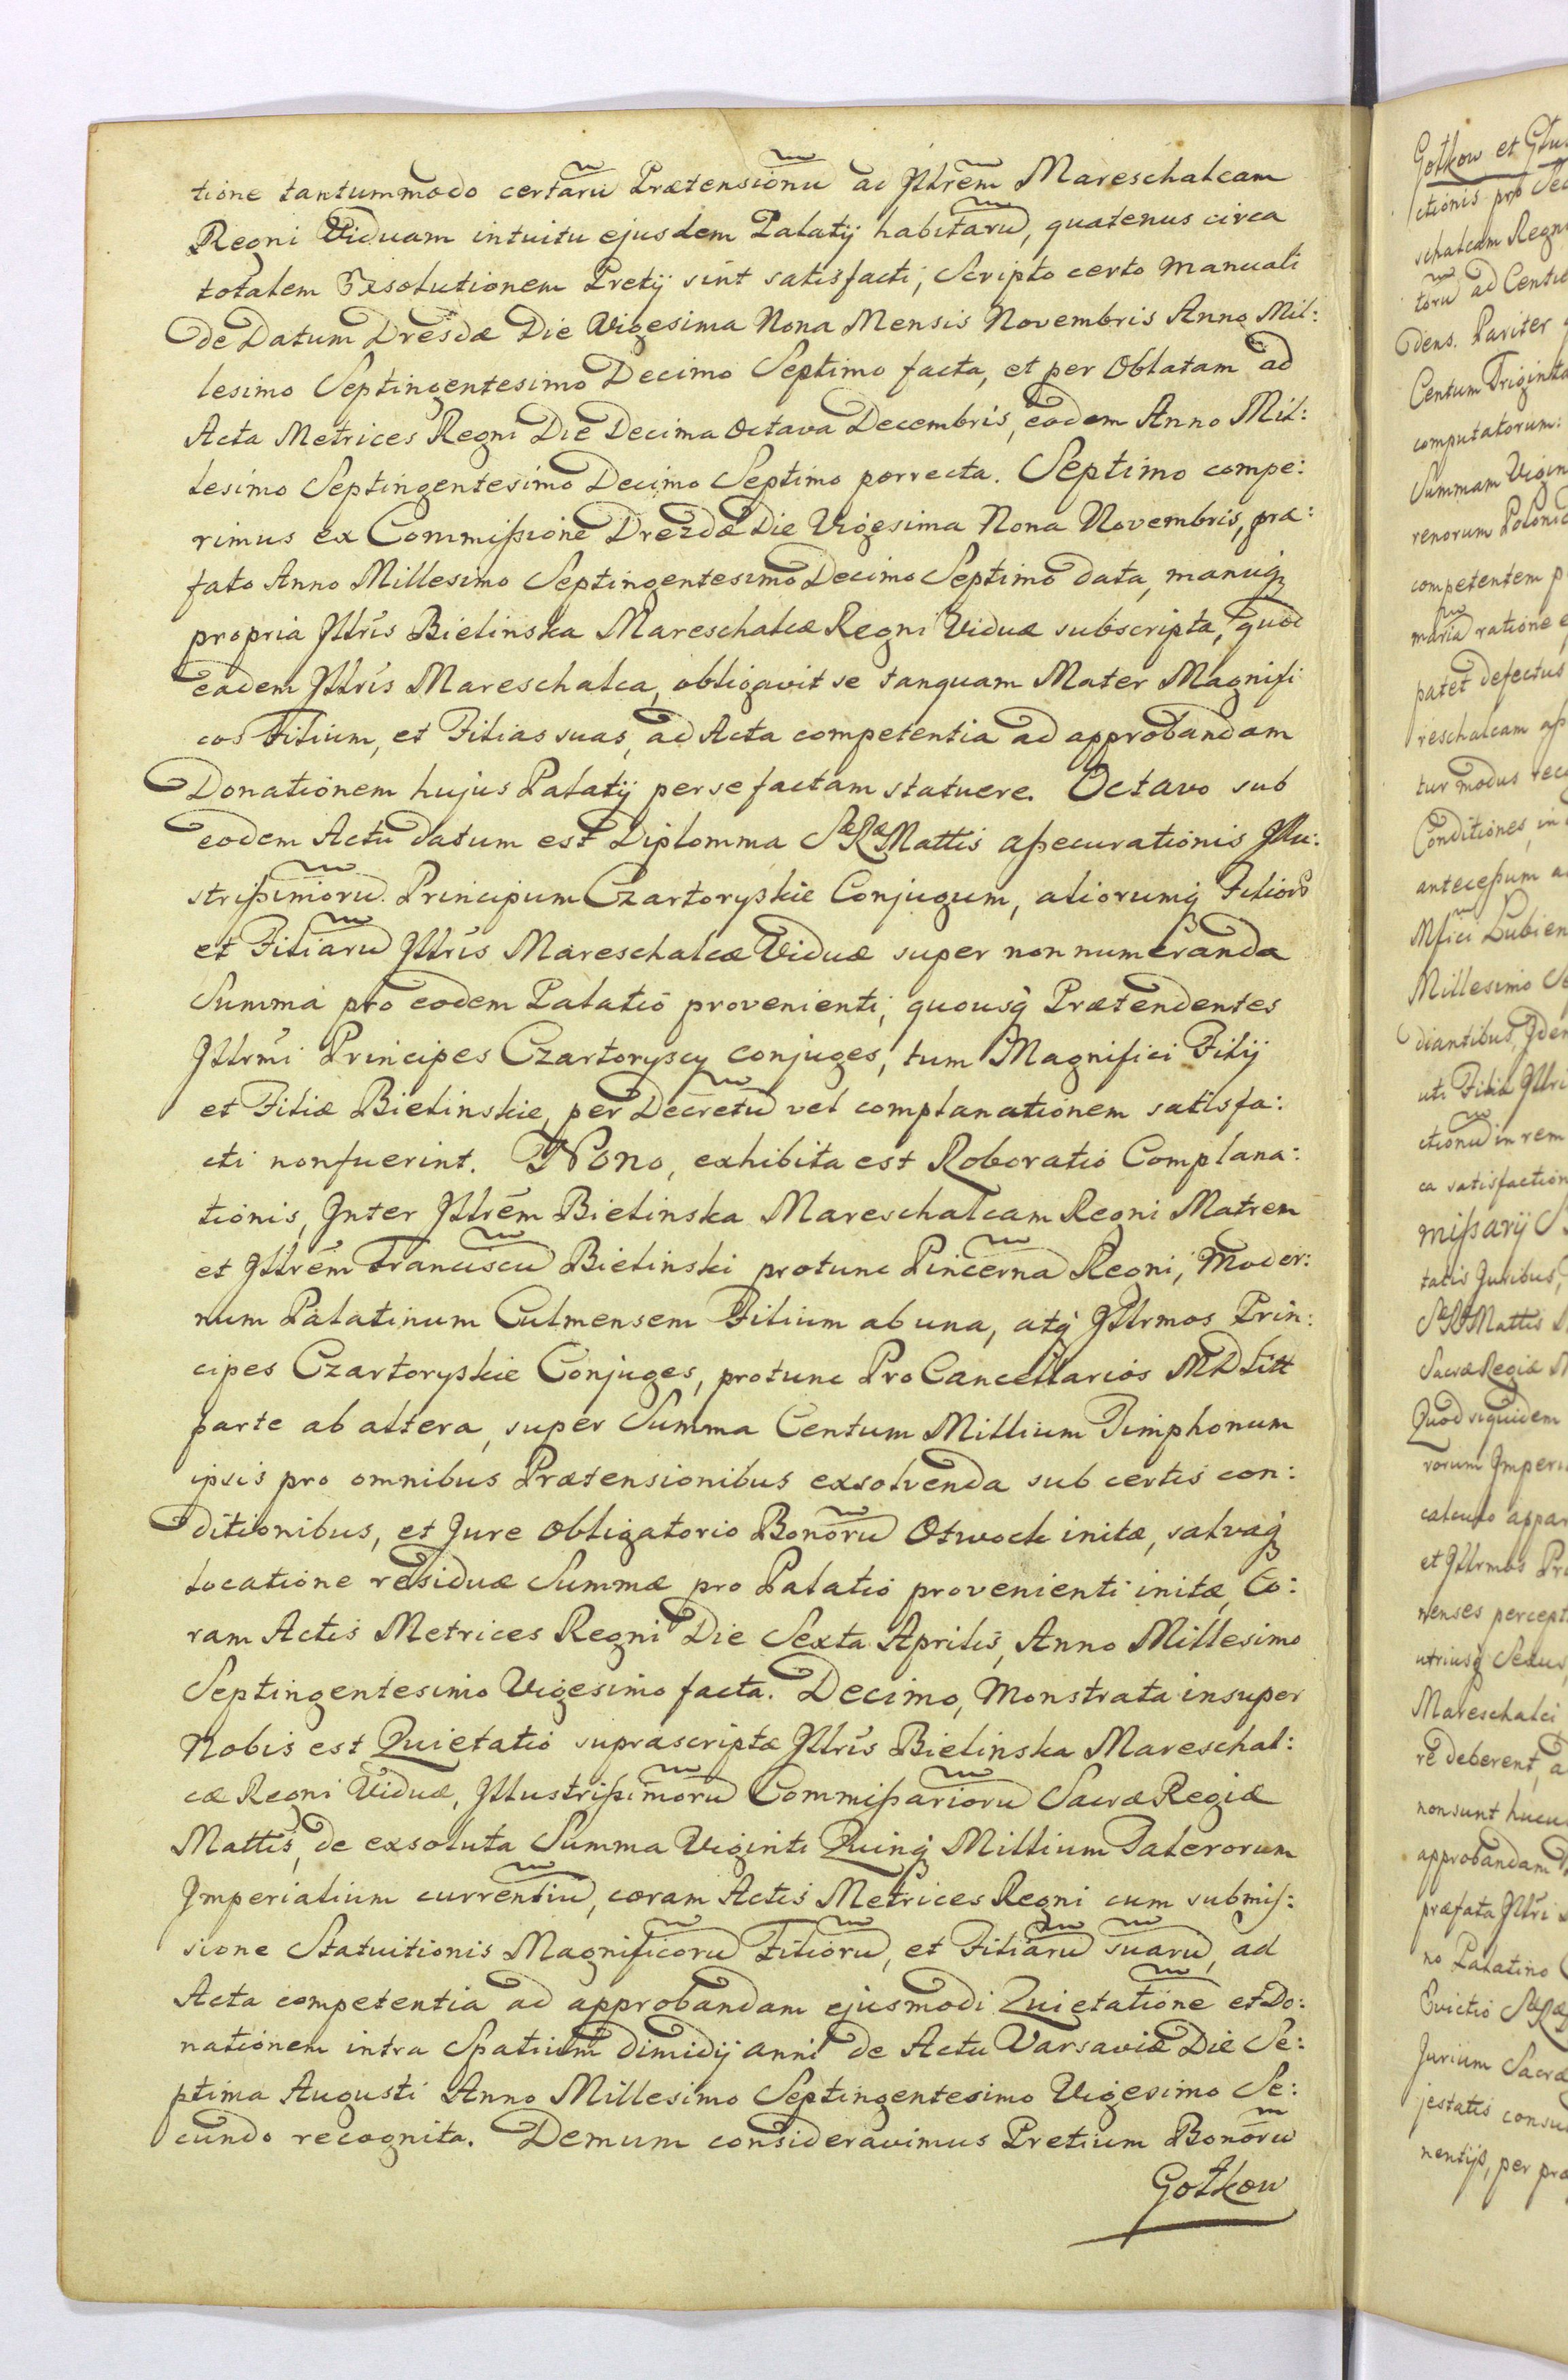 tione tantummodo certarũ Prætensionũ ad Jllrēm Mareschalcam
Regni Viduam intuitu ejusdem Palatij habitarũ, quatenus circa
totalem Exsolutionem Pretij sint satisfacti, Scripto certo manuali
de Datum Dresdæ Die Vigesima Nona Mensis Novembris Anno Mil:
lesimo Septingentesimo Decimo Septimo facta, et per Oblatam ad
Acta Metrices Regni Die Decima Octava Decembris, eodem Anno Mil:
lesimo Septingentesimo Decimo Septimo porrecta. Septimo compe:
rimus ex Commißione Drezdæ Die Vigesima Nona Novembris, præ:
fato Anno Millesimo Septingentesimo Decimo Septimo data, manuqꝫ
propria Jllris Bielinska Mareschalcæ Regni Viduæ subscripta, quod
eadem Jllris Mareschalca, obligavit se tanquam Mater Magnifi
cos Filium, et Filias suas, ad Acta competentia ad approbandam
Donationem hujus Palatij per se factam statuere. Octavo sub
eodem Actu datum est Diplomma SæRæ Mattis aßecurationis Jllu:
strißimorũ Principum Czartoryskie Conjugum, aliorumq́ Filiorũ
et Filiarũ Jllris Mareschalcæ Viduæ super non numeranda
Summa pro eodem Palatio provenienti, quousq́ Prætendentes
Jllrmi Principes Czartoryscy conjuges, tum Magnifici Filij
et Filiæ Bielinskie, per Decretũ vel complanationem satisfa:
cti nonfuerint. Nono, exhibita est Roboratio Complana:
tionis, Jnter Jllrēm Bielinska Mareschalcam Regni Matrem
et Jllrēm Franciscũ Bielinski protunc Pincernã Regni, Moder:
num Palatinum Culmensem Filium ab una, atq́ Jllrmos Prin:
cipes Czartoryskie Conjuges, protunc ProCancellarios MDLitt
parte ab altera, super Summa Centum Millium Timphonum
ipsis pro omnibus Prætensionibus exsolvenda sub certis con:
ditionibus, et Jure obligatorio Bonorũ Otwock initæ, salvaq́
locatione residuæ Summæ pro Palatio provenienti initæ, Co:
ram Actis Metrices Regni Die Sexta Aprilis, Anno Millesimo
Septingentesimo Vigesimo facta. Decimo, Monstrata insuper
Nobis est Quietatio suprascriptæ Jllris Bielinska Mareschal:
cæ Regni Viduæ, Jllustrißimorũ Commißariorũ Sacræ Regiæ
Mattis, de exsoluta Summa Viginti Quinq́ Millium Talerorum
Jmperialium currentiũ, coram Actis Metrices Regni cum submiſ:
sione Statuitionis Magnificorũ Filiorũ, et Filiarũ suarũ, ad
Acta competentia ad approbandam ejusmodi Quietationẽ et Do:
nationem intra Spatium dimidij anni de Actu Varsaviæ Die Se:
ptima Augusti Anno Millesimo Septingentesimo Vigesimo Se:
cundo recognita. Demum consideravimus Pretium Bonorũ
Gołkow
Gołkow et
ctionis pro
schalcam Regni
torũ ad
dens. Pariter
Centum Triginta
computatorum:
Summam
renorum
competentem
ratione
patet defectus
reschalcam
tur modus
Conditiones, in
anteceßum
Mfici
Millesimo
diantibus,
uti Filia
ctionũ in rem
ca
mißarij
tatis Juribus,
SæRæ Mattis
Sacræ Regiæ
Quod siquidem
rorum
calculo
et Jllrmos
nenses
utriusq́ Sexus
Mareschalci
re deberent,
non sunt
approbandam
præfata Jllri
no Palatino
Evictio
Jurium Sacræ
jestatis
nentijs, per